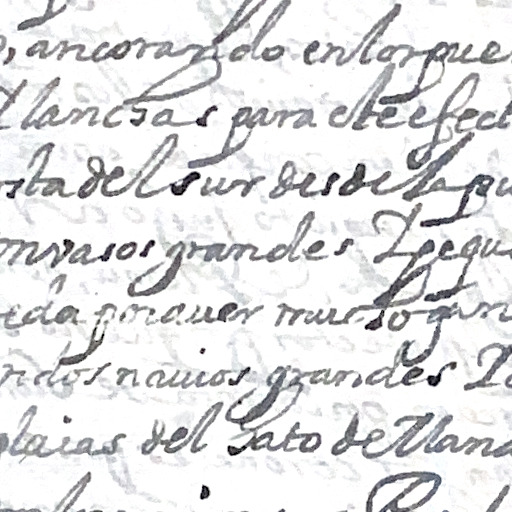 ancorando en los pue
lanchas para este efect
sta del sur desde la pu
em vasos grandes I pequ
eda por auer mucho gan
n dos nauios grandes I
plaias del hato de Ilana